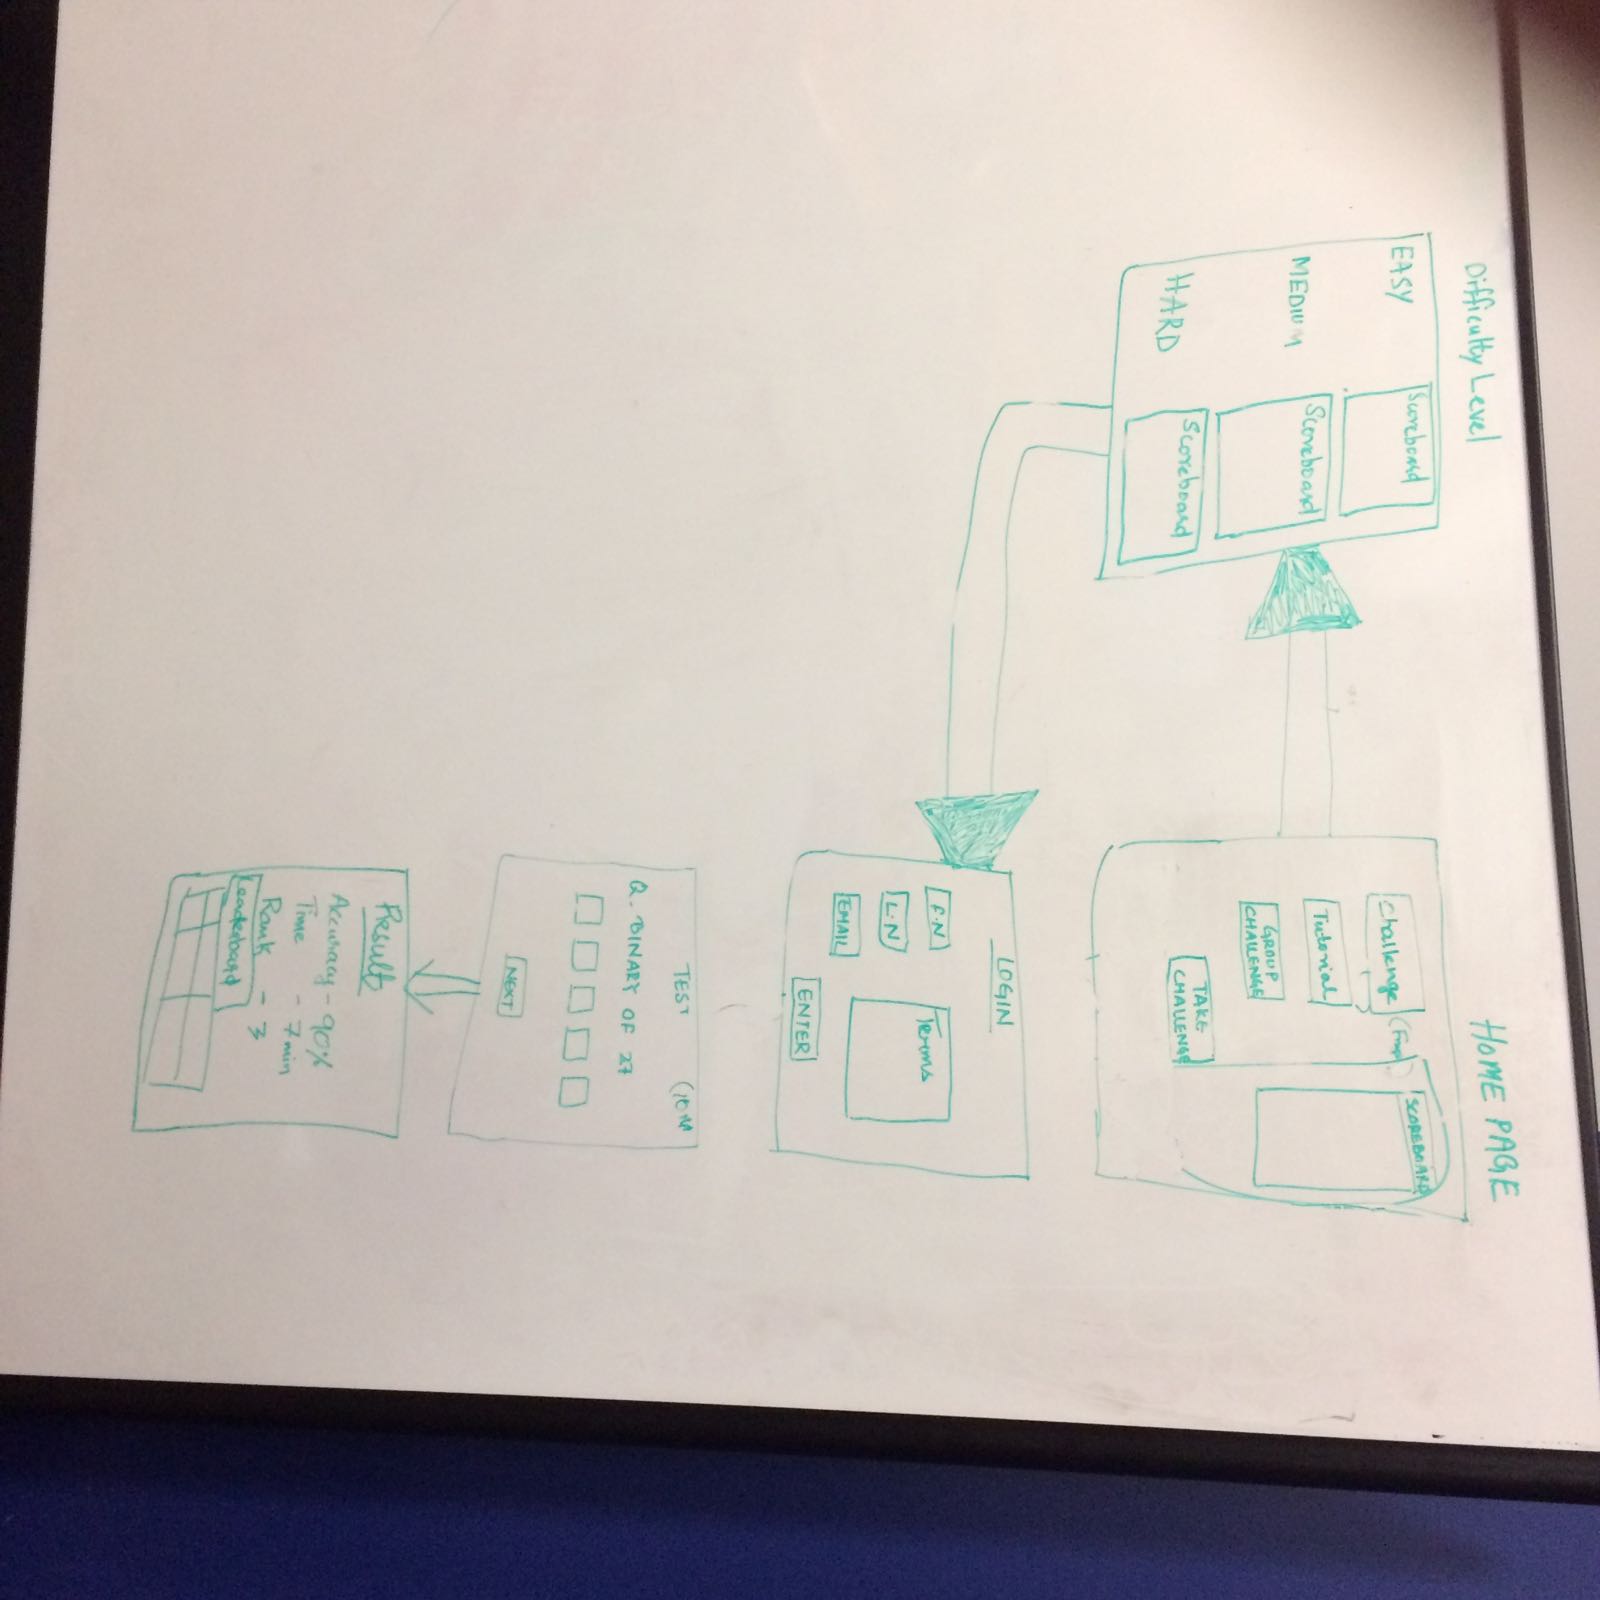 Difficulty Level
EASY
Scoreboard
MEDIUM
Scoreboard
HARD
Scoreboard
HOME PAGE
Challenge
SCOREBOARD
Tutorial
GROUP
CHALLENGE
TAKE
CHALLENGE
LOGIN
F.N
L.N
EMAIL
Terms
ENTER
TEST (10 M
Q. BINARY OF 27
NEXT
Result
Accuracy - 90%
Time - 7 min
Rank - 3
Leaderboard